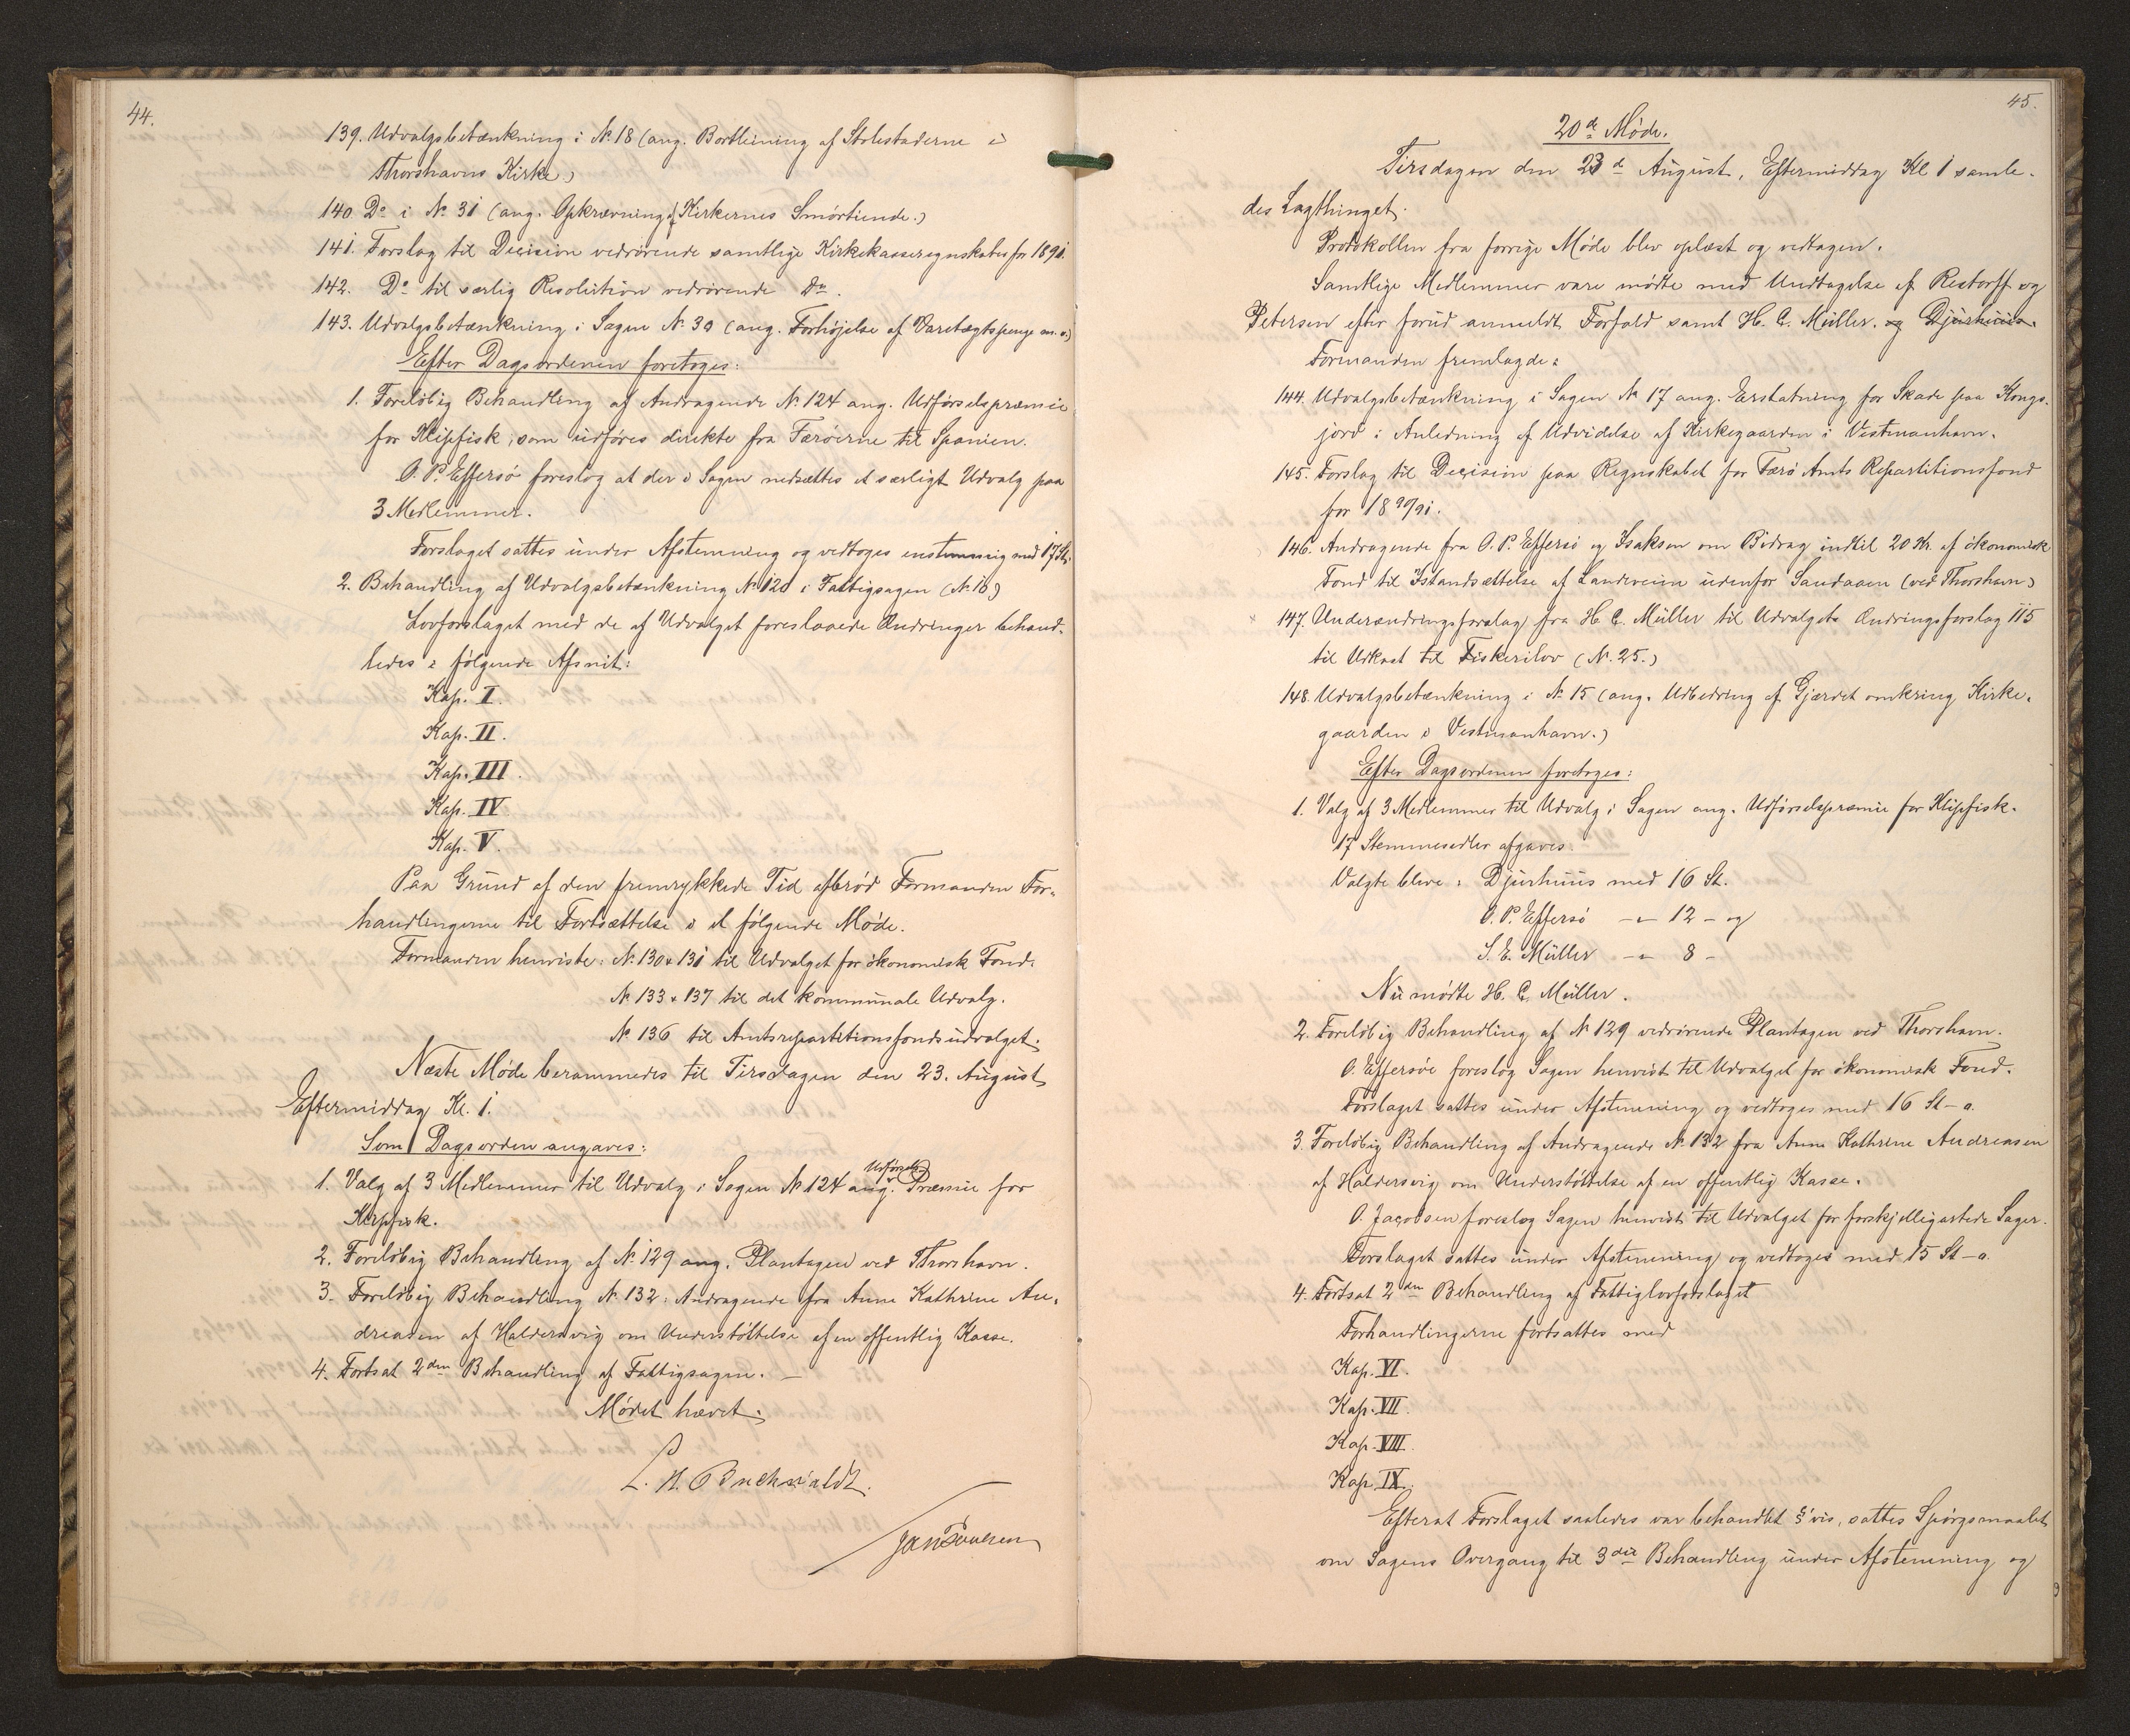 44.
139. Udvalgsbetænkning i N. 18 (ang. Bortleining af Stolestaderne i
Thorshavns Kirke)
140 Do i No. 31 (ang. Opkrævning af Kirkernes Smørtiende.)
141. Forslag til Decision vedrørende samtlige Kirkekasseregnskaber for 1891.
142. Do til særlig Resolution vedrørende Do.
143. Udvalgsbetænkning i Sagen No. 39 (ang. Forhøjelse af Varetægtspenge m. v.)
Efter Dagsordenen foretoges:
1. Foreløbig Behandling af Andragende No. 124 ang. Udførselspræmie
for Klipfisk, som udføres direkte fra Færøerne til Spanien.
O. P. Effersø foreslog at der i Sagen nedsættes et særligt Udvalg paa
3 Medlemmer.
Forslaget sattes under Afstemning og vedtoges enstemmig med 17 St.
2. Behandling af Udvalgsbetænkning No. 120 i Fattigsagen (No. 16)
Lovforslaget med de af Udvalget foreslaaede Ændringer behand-
ledes i følgende Afsnit:
Kap. I.
Kap. II.
Kap. III.
Kap. IV
Kap. V.
Paa Grund af den fremrykkede Tid afbrød Formanden For-
handlingerne til Fortsættelse i et følgende Møde.
Formanden henviste: No. 130 & 131 til Udvalget for økonomisk Fond.
No. 133 & 137 til det kommunale Udvalg.
No. 136 til Amtsrepartitionsfondsudvalget.
Næste Møde berammedes til Tirsdagen den 23. August
Eftermiddag Kl. 1.
Som Dagsorden angaves:
1. Valg af 3 Medlemmer til Udvalg i Sagen No. 124 ang. Udførsels Præmie for
Klipfisk.
2. Foreløbig Behandling af No. 129 ang. Plantagen ved Thorshavn.
3. Foreløbig Behandling No. 132: Andragende fra Anne Kathrine An-
dreasen af Haldersvig om Understøttelse af en offentlig Kasse.
4. Fortsat 2den Behandling af Fattigsagen. —
Mødet hævet.
C. A. Buchwaldt.
J. A. Poulsen
45.
20de Møde.
Tirsdagen den 23d August, Eftermiddag Kl 1 samle-
des Lagthinget.
Protokollen fra forrige Møde blev oplæst og vedtagen.
Samtlige Medlemmer vare mødte med Undtagelse af Restorff og
Petersen efter forud anmeldt Forfald samt H. C. Müller. og Djurhuus.
Formanden fremlagde:
144. Udvalgsbetænkning i Sagen No 17 ang. Erstatning for Skade paa Kongs-
jord i Anledning af Udvidelse af Kirkegaarden i Vestmanhavn.
145. Forslag til Decision paa Regnskabet for Færø Amts Repartitionsfond
for 1890/91.
146. Andragende fra O. P. Effersø og Isaksen om Bidrag indtil 20 Kr. af økonomisk
Fond til Istandsættelse af Landeveien udenfor Sandaaen (ved Thorshavn)
147. Underændringsforslag fra H. C. Müller til Udvalgets Ændringsforslag 115
til Udkast til Fiskerilov (No. 25.)
148. Udvalgsbetænkning i No. 15 (ang. Udbedring af Gjærdet omkring Kirke-
gaarden i Vestmanhavn.)
Efter Dagsordenen foretoges:
1. Valg af 3 Medlemmer til Udvalg i Sagen ang. Udførselspræmie for Klipfisk.
17 Stemmesedler afgaves.
Valgte bleve: Djurhuus med 16 St.
O. P. Effersø —"— 12 — og
S. E. Müller —"— 8 —
Nu mødte H. C. Müller.
2. Foreløbig Behandling af No 129 vedrørende Plantagen ved Thorshavn.
O. Effersøe foreslog Sagen henvist til Udvalget for økonomisk Fond.
Forslaget sattes under Afstemning og vedtoges med 16 St — o.
3. Foreløbig Behandling af Andragende No. 132 fra Anne Kathrine Andreasen
af Haldersvig om Understøttelse af en offentlig Kasse.
O. Jacobsen foreslog Sagen henvist til Udvalget for forskjelligartede Sager.
Forslaget sattes under Afstemning og vedtoges med 15 St — o.
4. Fortsat 2den Behandling af Fattiglovforslaget
Forhandlingerne fortsattes med
Kap. VI.
Kap. VII.
Kap. VIII.
Kap. IX.
Efterat Forslaget saaledes var behandlet §'vis, sattes Spørgsmaalet
om Sagens Overgang til 3die Behandling under Afstemning og